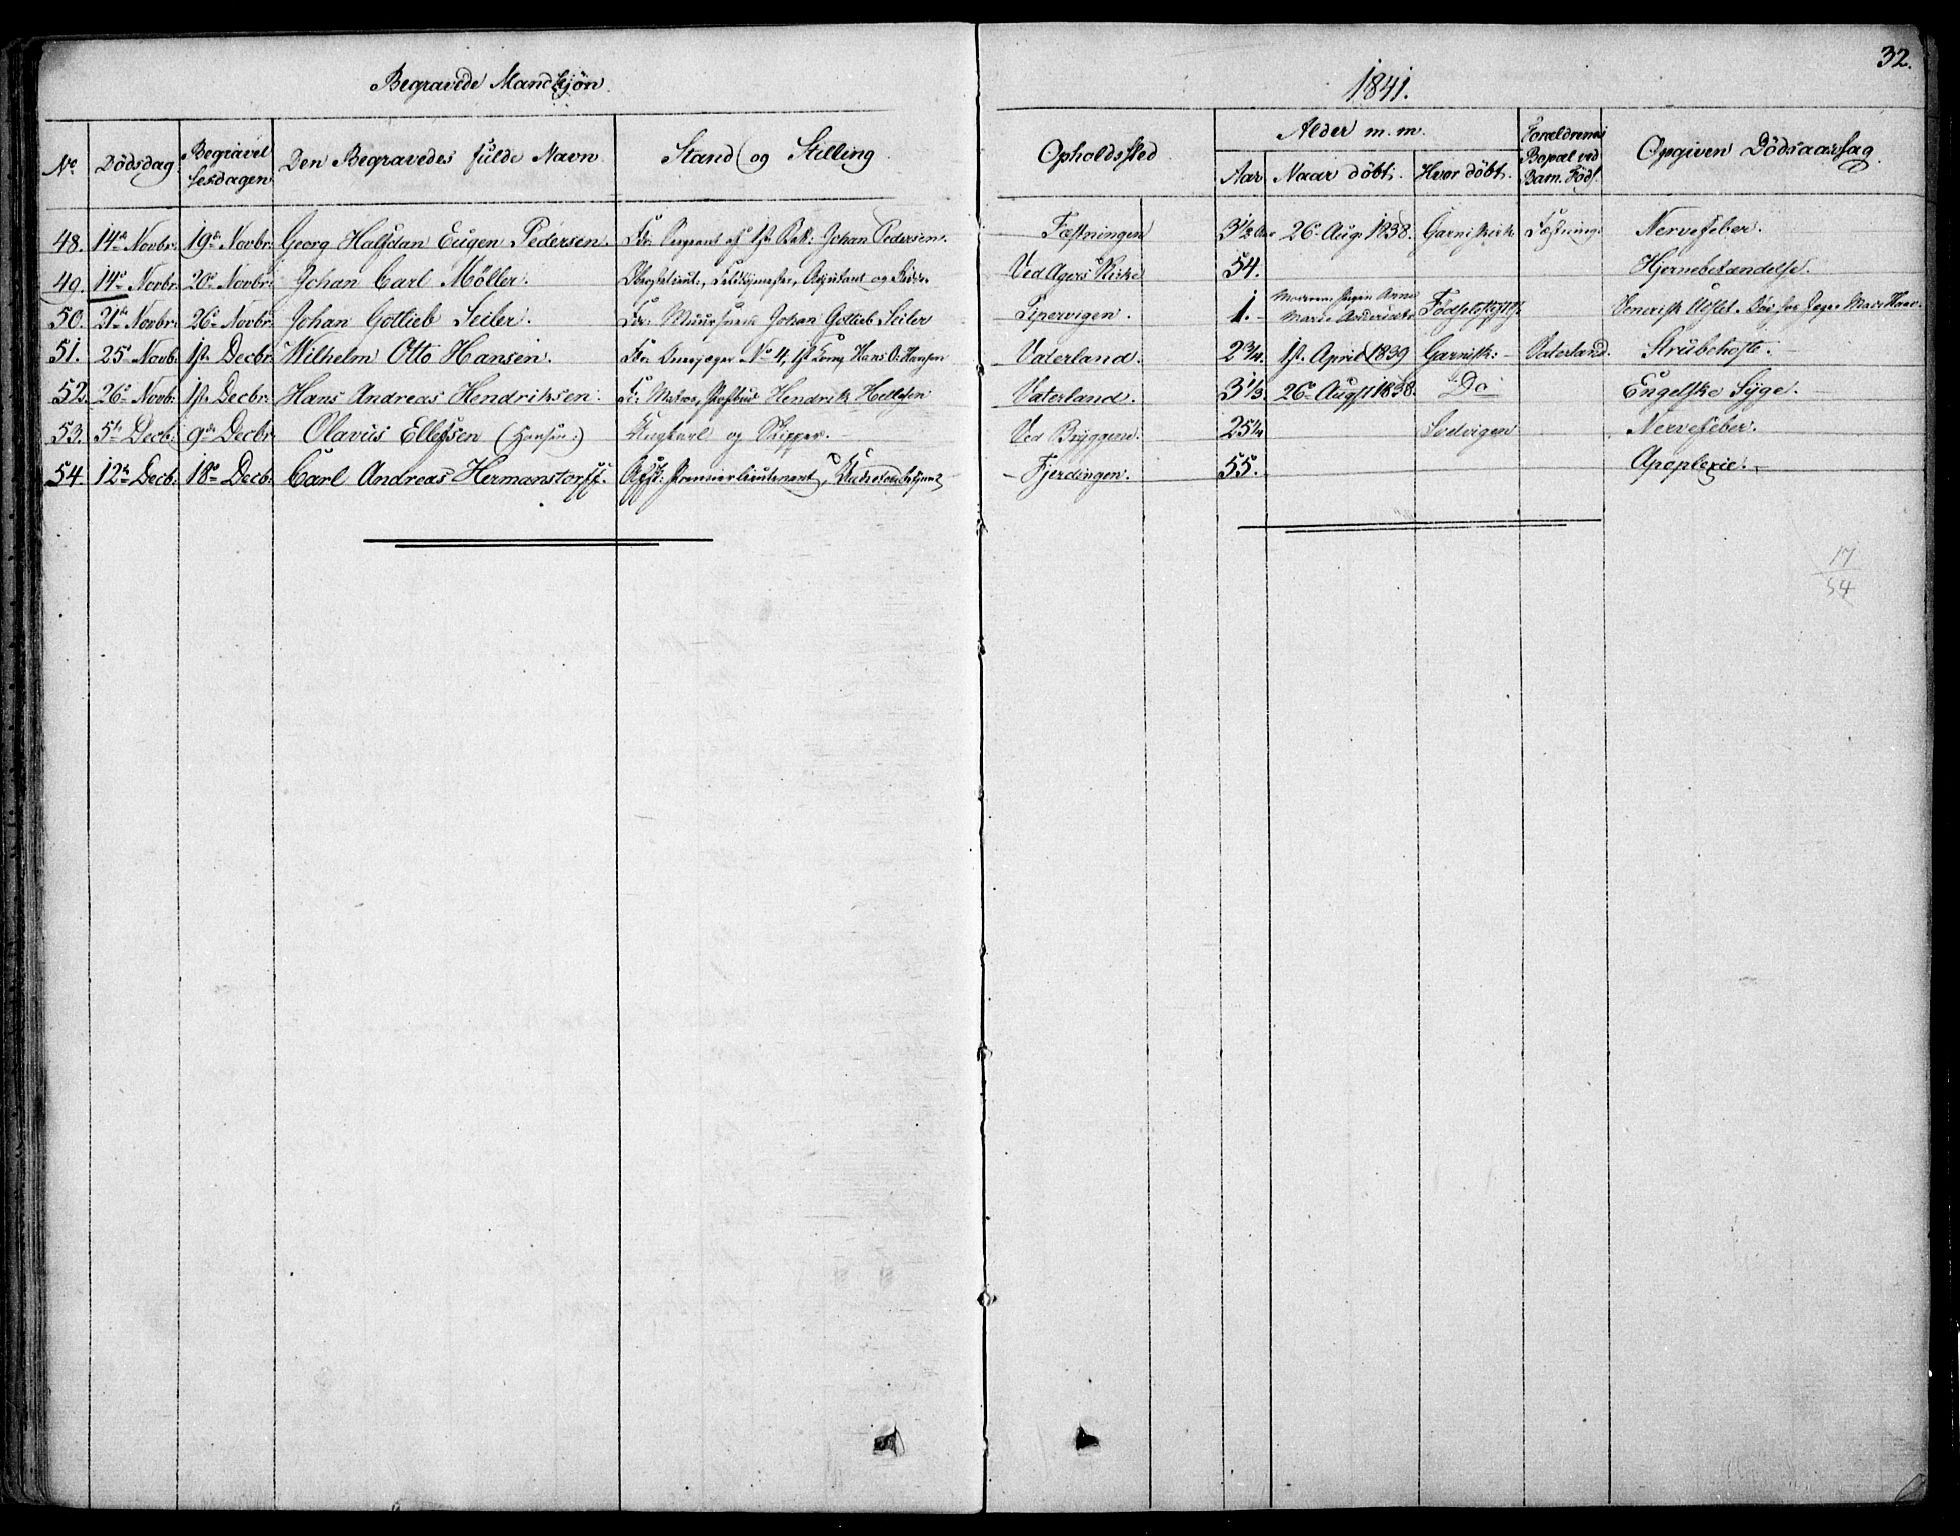 32.
Begravede Mandkjön. 1841.
No Dödsdag Begravelsesdagen Den Begravedes fulde Navn Stand og Stilling Opholdssted Alder m. m. Aar Naar döbt. Hvor döbt. Forældrenes Bopæl ved Barn. Föds. Opgiven Dödsaarsag
48. 14de Novbr: 19de Novbr: Georg Halfdan Eugen Pedersen. Johan Pedersen. Fæstningen 3 1/2 26 Aug. 1838. Garn: Kirk Fæstning: Nervefeber.
49. 14de Novbr: 20de Novbr: Johan Carl Möller. Adjutant og Ved Agers Kirke 54. Hjernebetændelse.
50. 21de Novbr: 26de Novbr: Johan Gotlieb Seiler. Johan Gotlieb Seiler Pipervigen. 1. Moderen Anne Marie Födselsstift: Venerisk
51. 25de Novb: 1ste Decbr: Wilhelm Otto Hansen. No 4, Hans O. Hansen Vaterland. 2 3/4 1ste April 1839 Garnisk: Vaterland. Strubehoste.
52. 26de Novb: 1ste Decbr: Hans Andreas Hendriksen. Hendrik Vaterland. 3 1/3 26de Augst 1838. Do Engelske Syge.
53. 5te Decb: 9de Decbr: Olavus Ellefsen (Hansen:) og Skipper. Ved Bryggene. 25 1/4 Nervefeber.
54 12te Decb: 18de Decb: Carl Andreas Hermanstorff. Premierlieutenant, Fjerdingen. 55. Apoplexie.
17
54